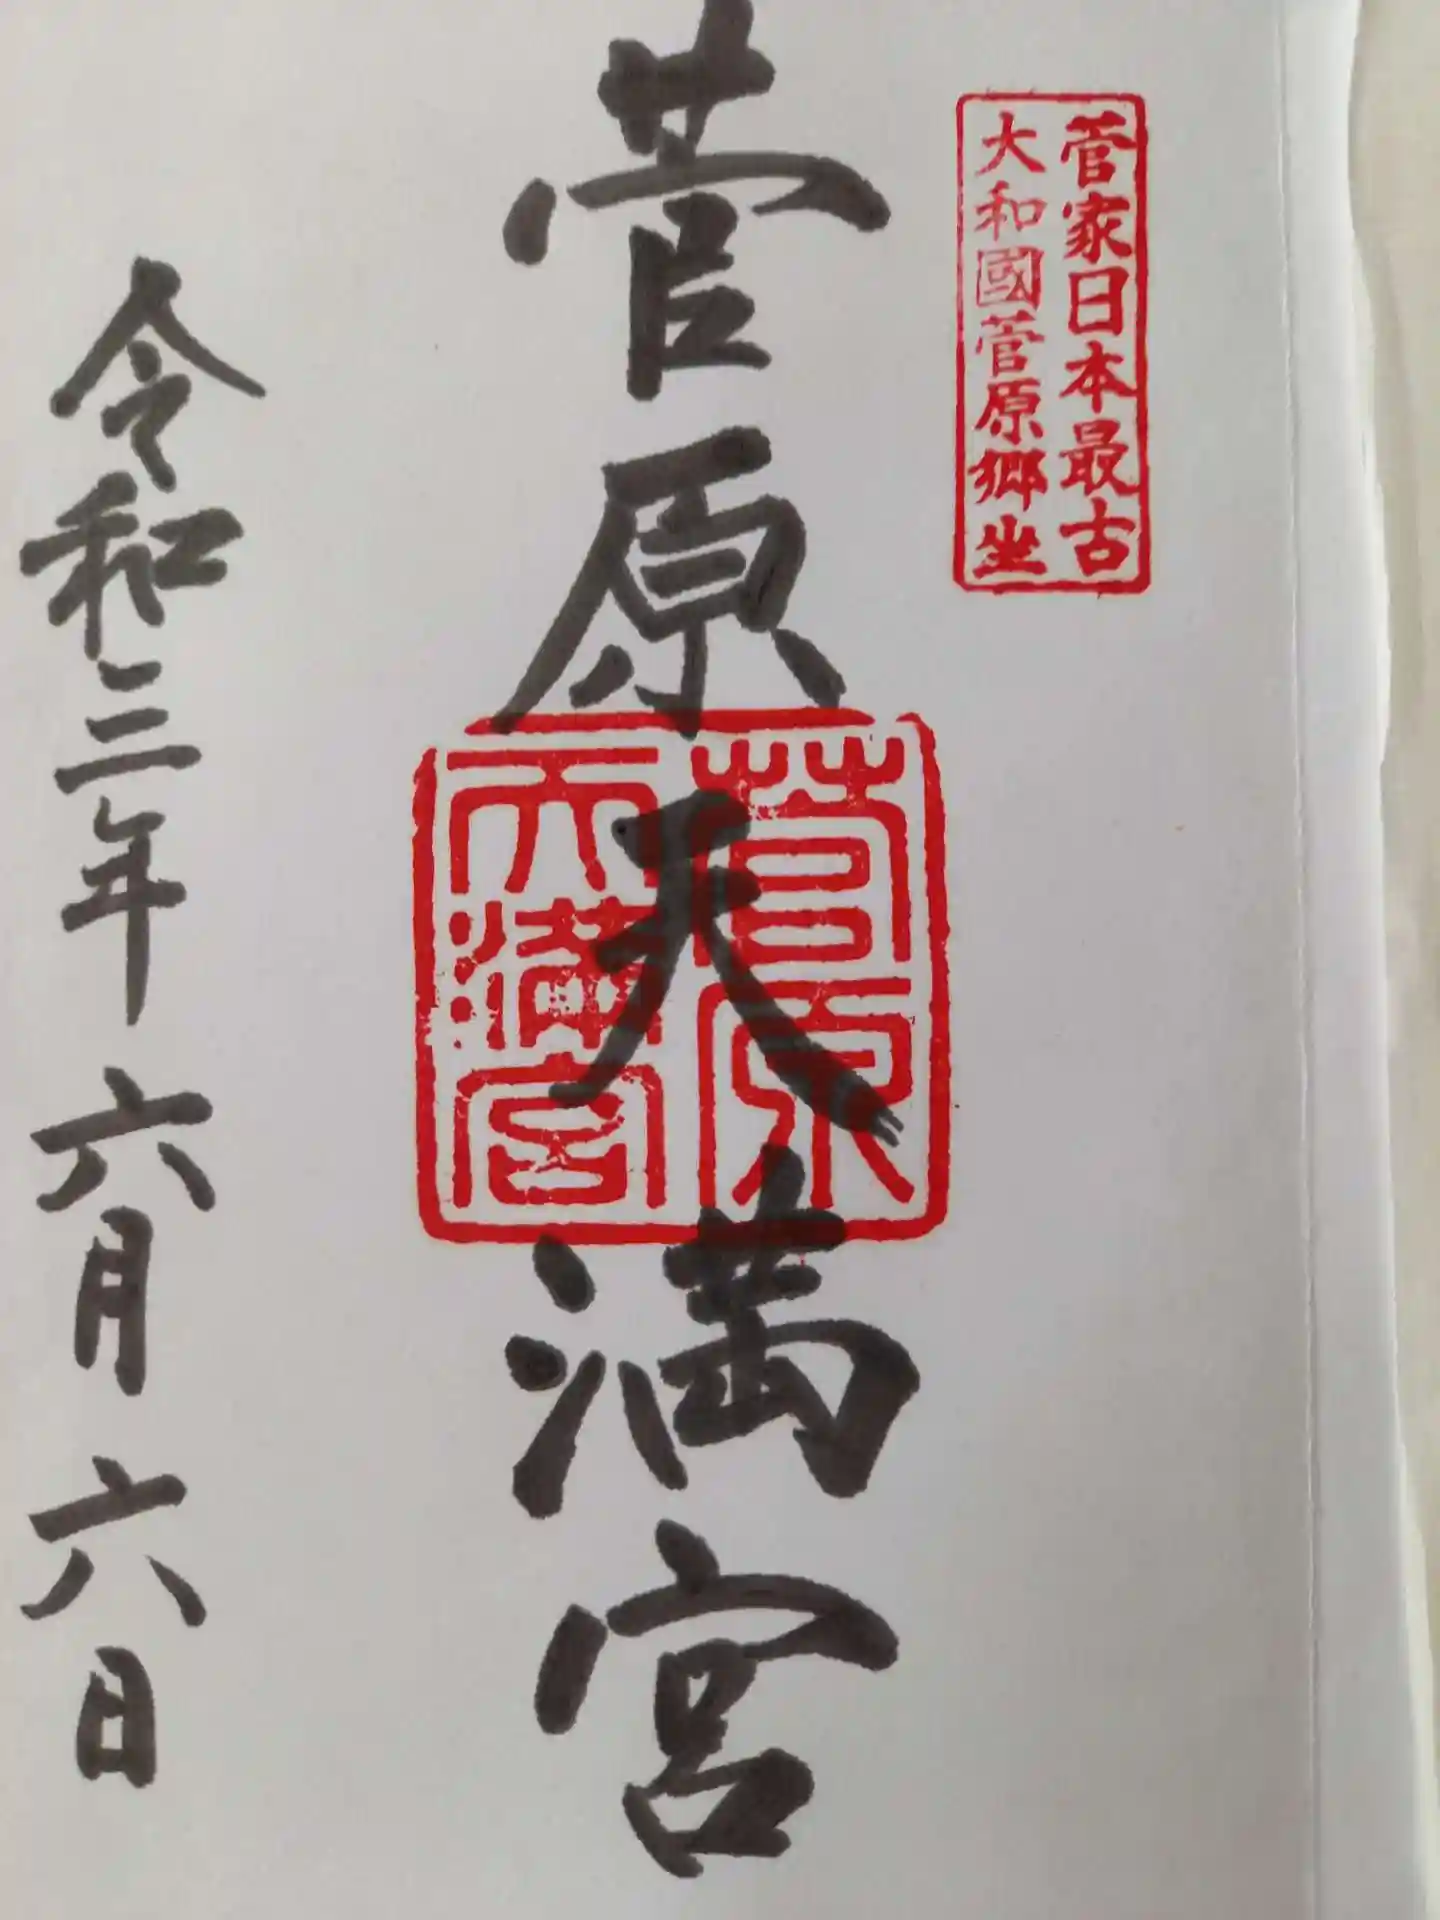 菅家日本最古
大和國菅原郷坐
菅原天満宮
菅原
天満宮
令和三年六月六日